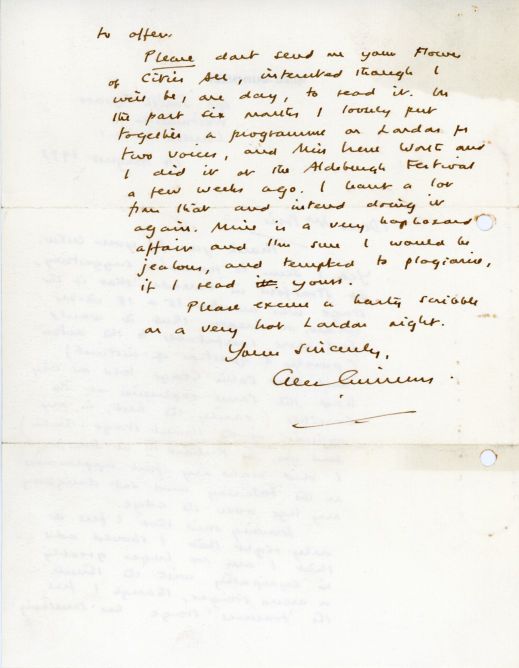 to offer.
Please don't send me your Flower
of Cities All, interested though I
will be, one day, to read it. In
the past six months I loosely put
together a programme on London for
two voices, and Miss Irene Worth and
I did it at the Aldeburgh Festival
a few weeks ago. I learnt a lot
from that and intend doing it
again. Mine is a very haphazard
affair and I'm sure I would be
jealous, and tempted to plagiarise,
if I read yours.
Please excuse a hasty scribble
on a very hot London night.
Yours sincerely,
Alec Guinness.